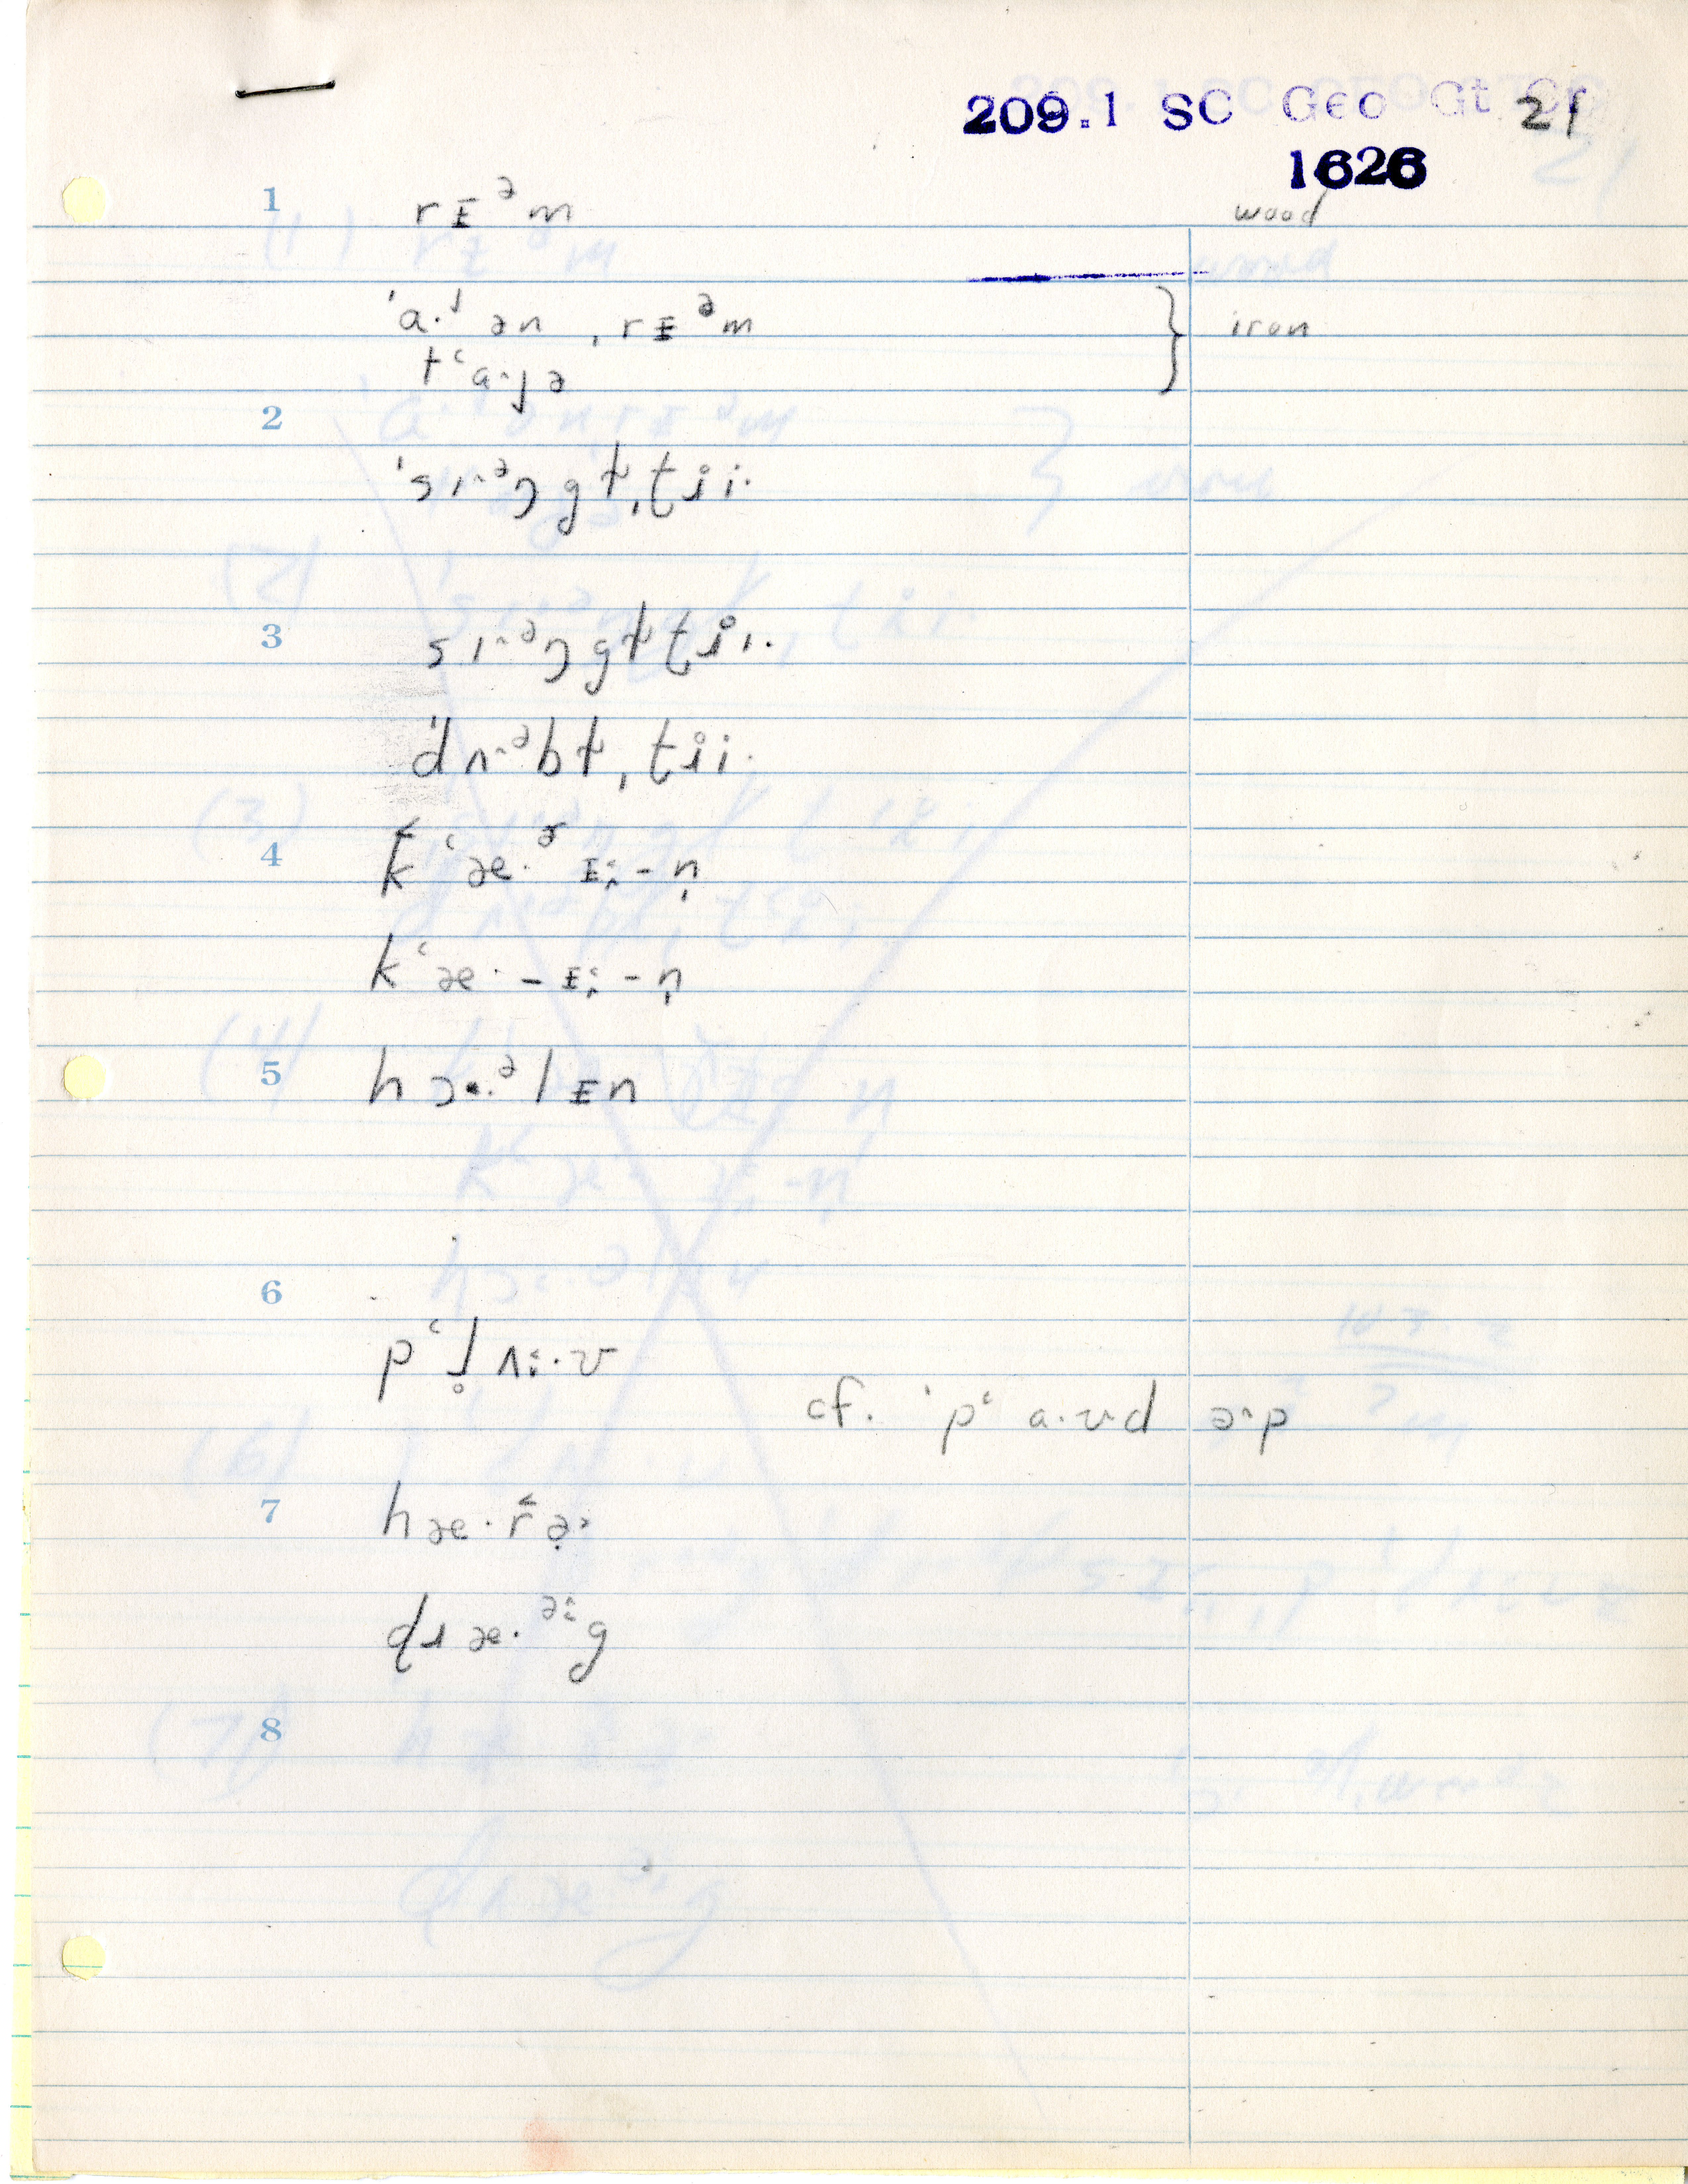 209.1 SC Geo Gt Cr 21
1626
1 rɪᵊm wood
ˈɑ·ɹ ən ˌrɪᵊm } iron
tʻɑ˄·ɟə
2
ˈsɪ˄ᵊŋ gt̬ˌtɹ̥i·
3 sɪ˄ᵊŋ gt̬tɹ̥i·
ˈdʌ˄ᵊbt̬ˌtɹ̥i·
4 k̂ʻæ·ᵊ ɪ:-n̩
kʻæ·-ɪ:-n̩
5 hɔ·ᵊlɪn
6
pʻl̥ʌ:·v
cf. ˈpʻɑ·ʊd ə˄p
7 hæ·r̂ə˃
dɹæ·ᵊg
8